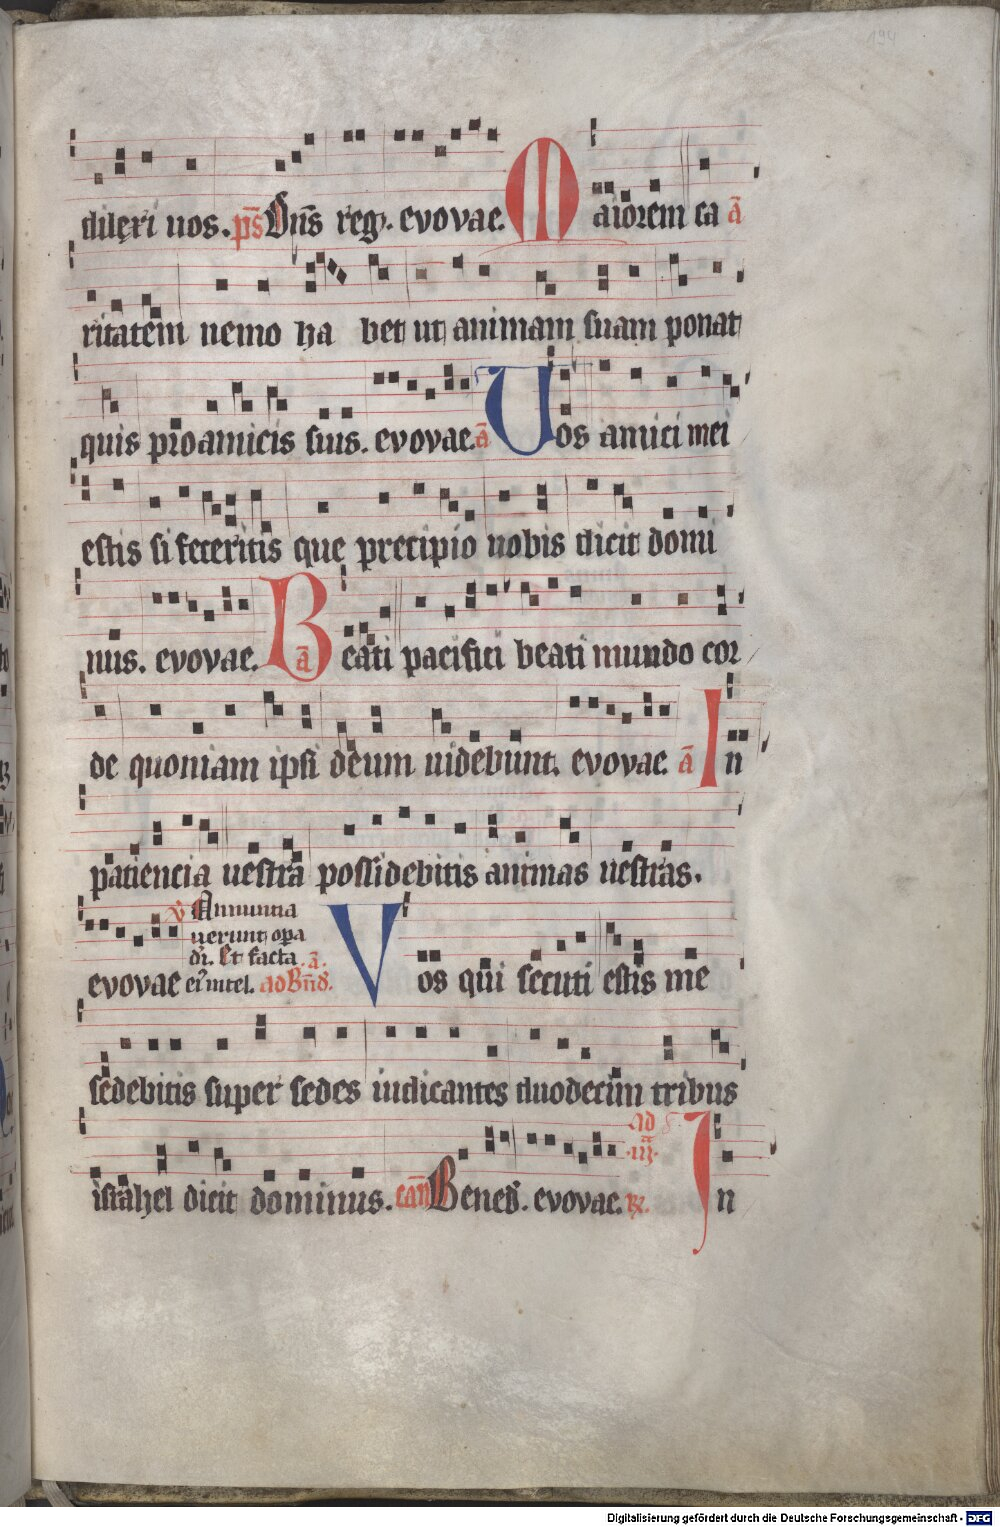 194
dilexi uos. ps̄ Dn̄s reg. evovae. Maiorem ca ā
ritatem nemo ha bet ut animam suam ponat
quis pro amicis suis. evovae. ā Uos amici mei
estis si feceritis que precipio uobis dicit domi
nus. evovae. ā Beati pacifici beati mundo cor
de quoniam ipsi deum uidebunt. evovae. ā In
patiencia uestra possidebitis animas uestras.
evovae v̄ Annuntia
uerunt opa
di. Et facta
ei᷒ intel. ad Bn̄d. ā. Vos qui secuti estis me
sedebitis super sedes iudicantes duodecim tribus
israhel dicit dominus. can̄ Bened. evovae. ad iij. R. In
Digitalisierung gefördert durch die Deutsche Forschungsgemeinschaft - DFG